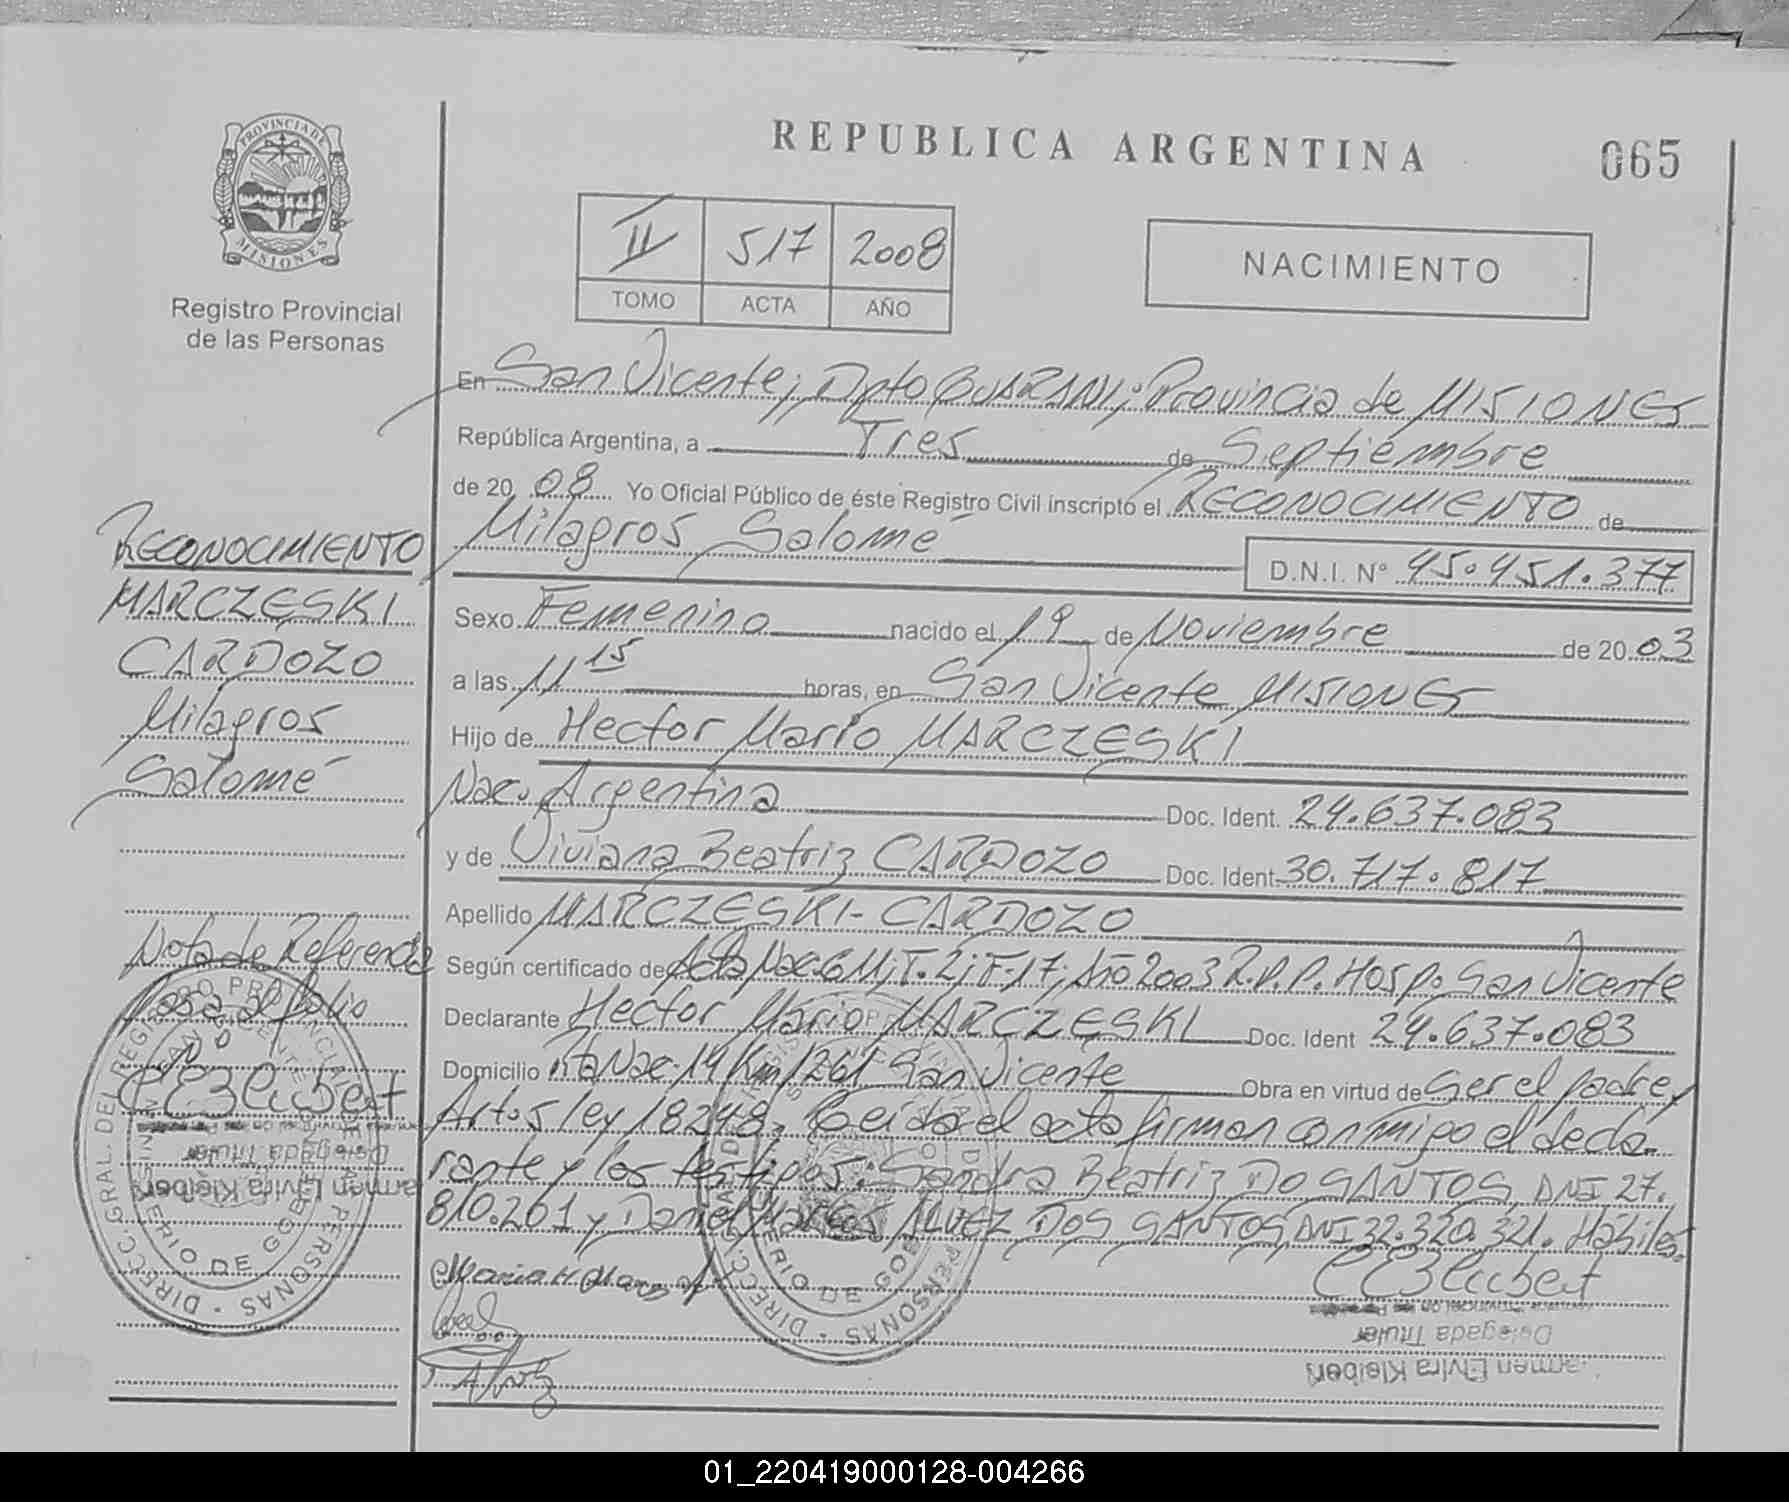 REPUBLICA ARGENTINA
065
PROVINCIA DE
MISIONES
Registro Provincial
de las Personas
II 517 2008
TOMO ACTA AÑO
NACIMIENTO
En San Vicente; Dpto GUARANI; Provincia de MISIONES
República Argentina, a Tres de Septiembre
de 20 08 Yo Oficial Público de éste Registro Civil inscripto el RECONOCIMIENTO de
Milagros Salomé
D.N.I. N° 45.451.377
Sexo Femenino nacido el 19 de Noviembre de 20 03
a las 11 15 horas, en San Vicente MISIONES
Hijo de Hector Mario MARCZESKI
Nac. Argentina Doc. Ident. 24.637.083
y de Viviana Beatriz CARDOZO Doc. Ident 30.717.817
Apellido MARCZESKI - CARDOZO
Según certificado de Acta Nac. 611; T. 2; F-17; Año 2003 R.P.P. Hosp. San Vicente
Declarante Hector Mario MARCZESKI Doc. Ident 24.637.083
Domicilio Rta Nac. 14 Km 1261 San Vicente Obra en virtud de ser el padre,
Art. 5 ley 18248. Leída el acta firman conmigo el decla-
rante y los testigos: Sandra Beatriz DO SANTOS DNI 27.
810.261 y Daniel Marcos ALVEZ DOS SANTOS DNI 32.320.321. Hábiles.
Delegada Titular
Carmen Elvira Kleibert
RECONOCIMIENTO
MARCZESKI
CARDOZO
Milagros
Salomé
Nota de Referencia
Pasa al folio
N°
Delegada Titular
Carmen Elvira Kleibert
01_220419000128-004266